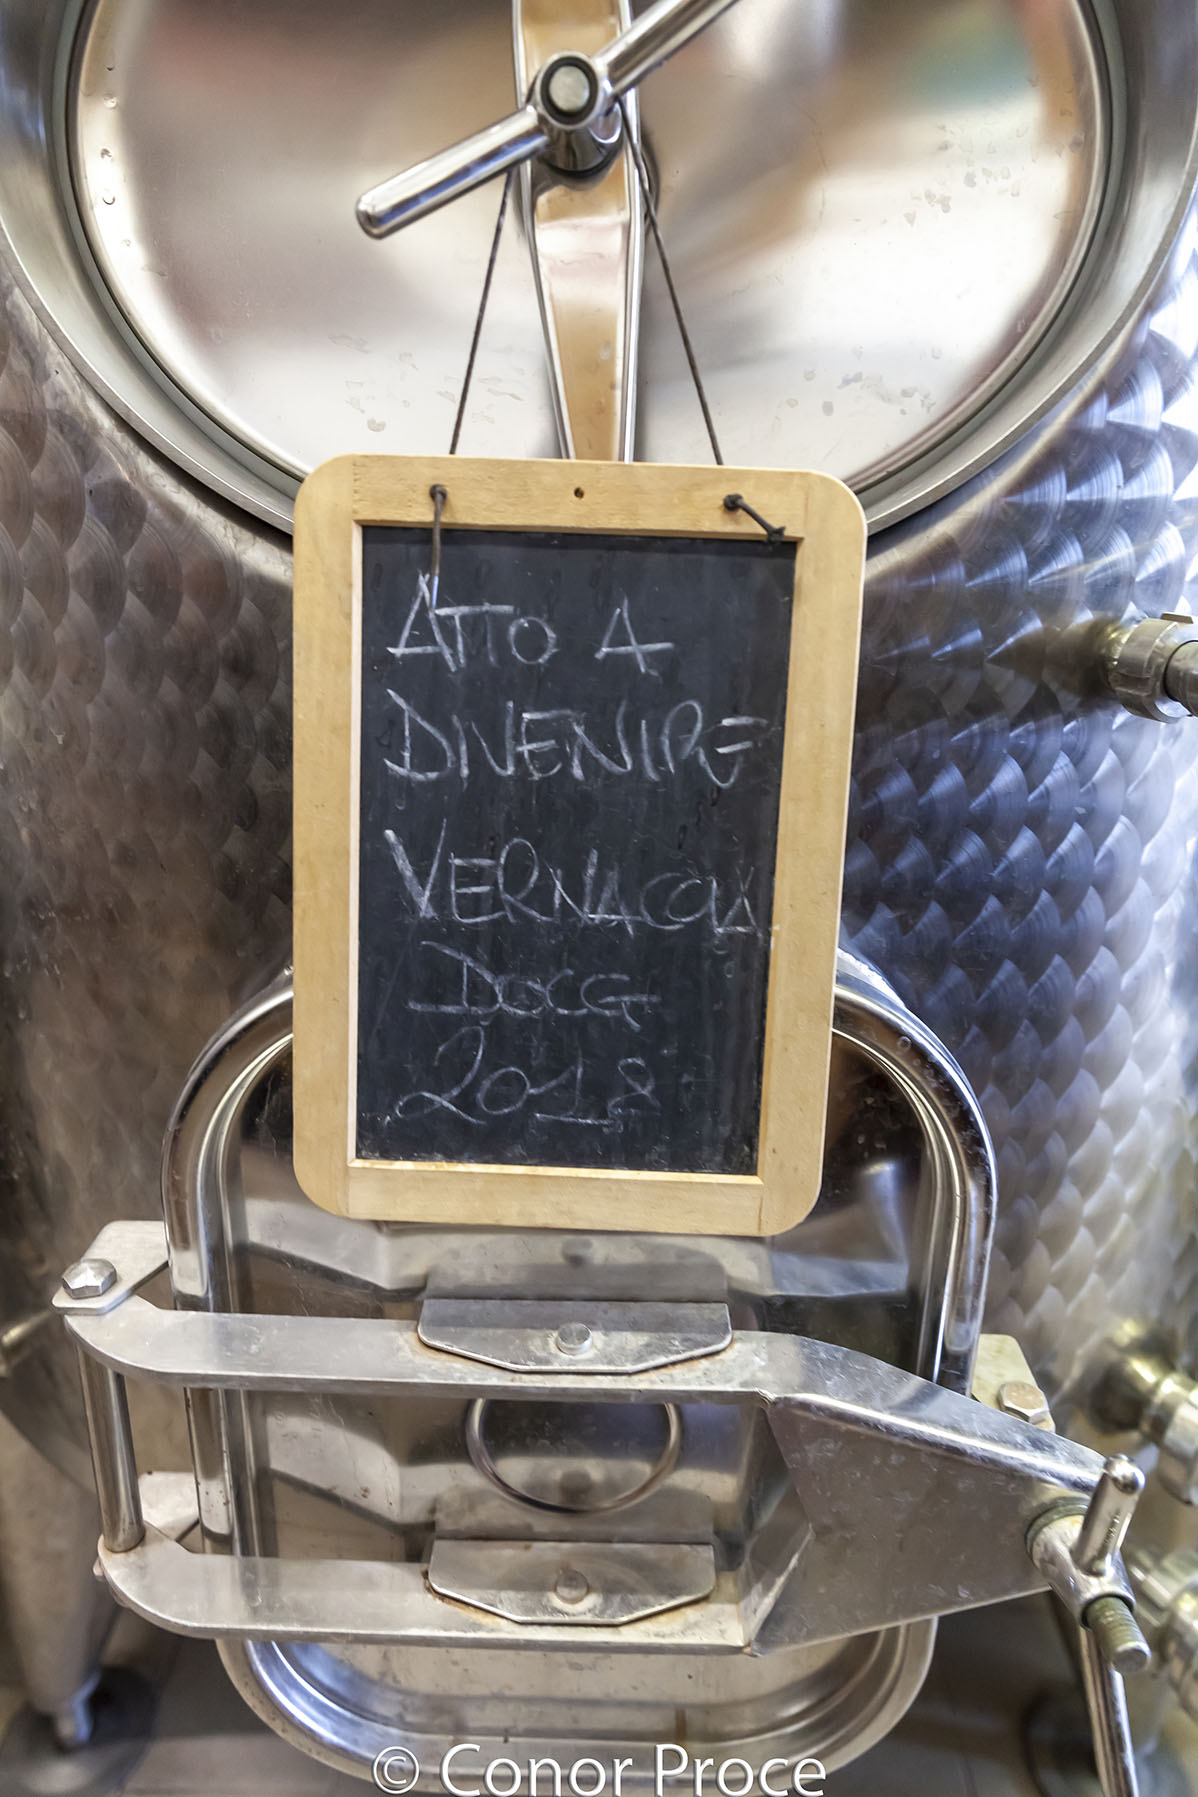 ATTO A
DIVENIRE
VERNACCIA
DOCG
2018
© Conor Proce